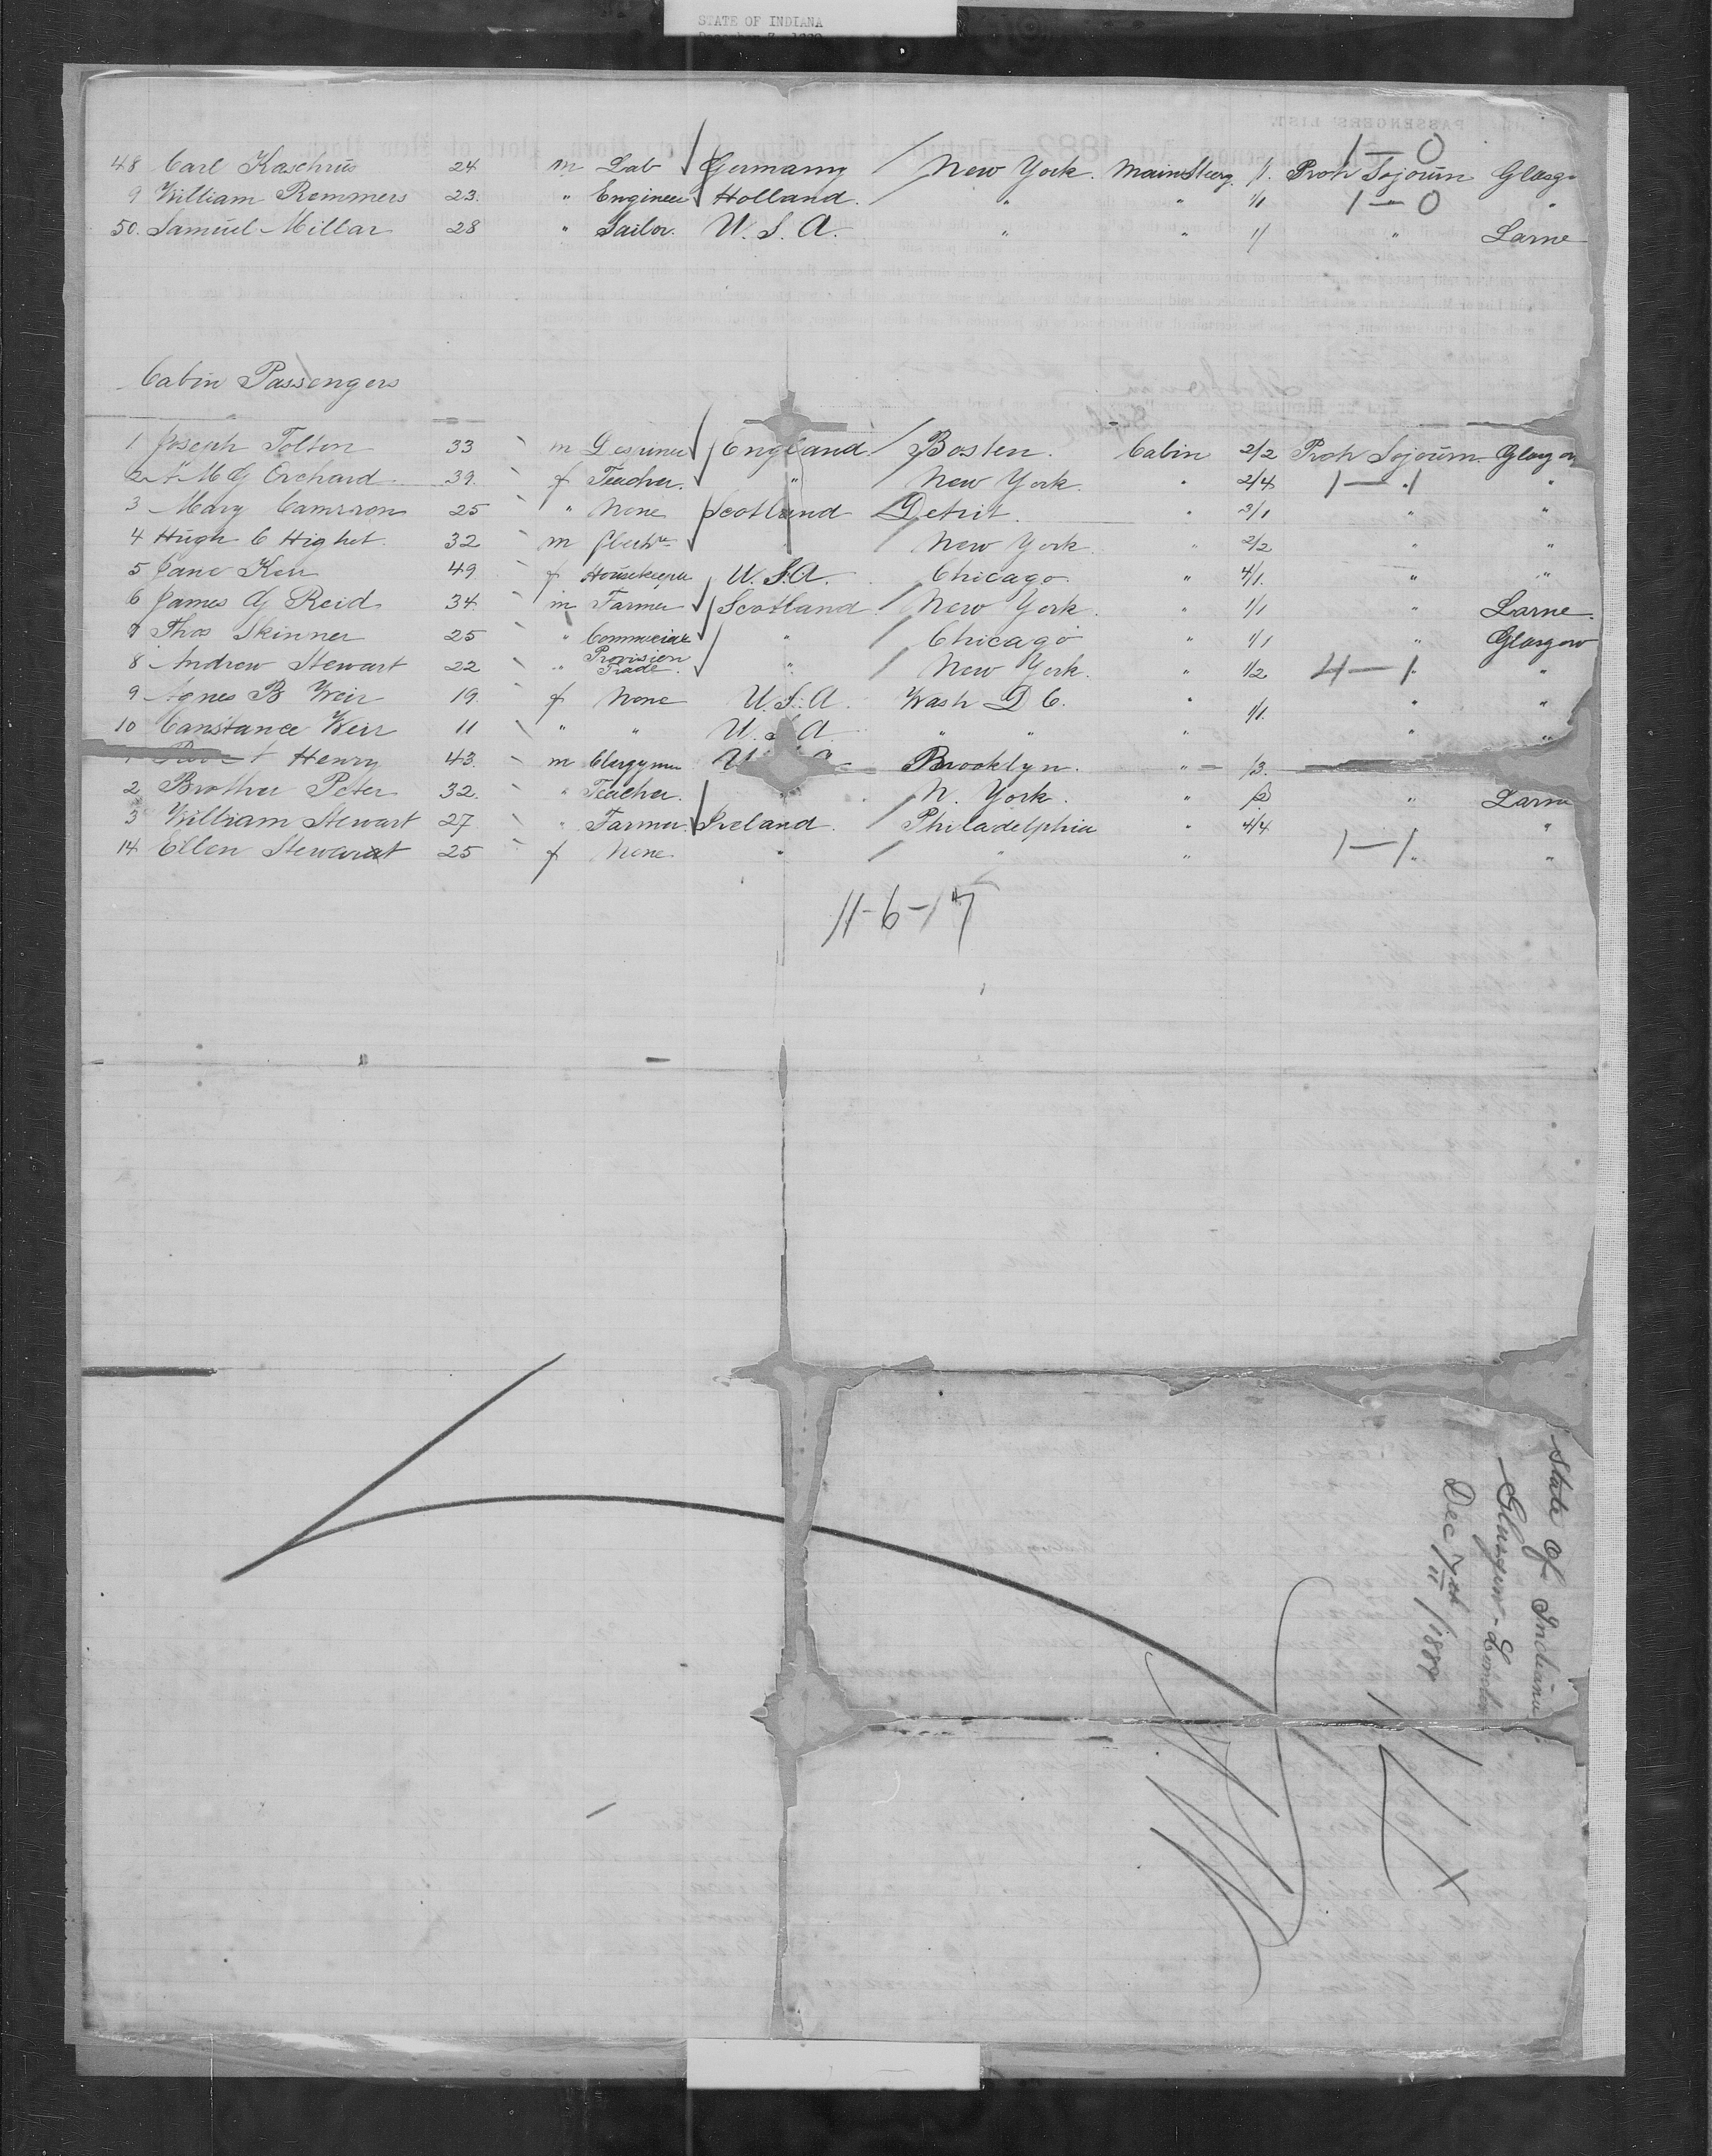 STATE OF INDIANA
48 Carl Kaschrus 24 m Lab Germany New York. Main Steerg. 1/. Prot. Sojourn Glasgo
1—0
9 William Remmers 23. " Engineer Holland. " " 1/1 " "
1—0
50. Samuel Millar 28 " Sailor. U.S.A. " " 1/ " Larne
Cabin Passengers
1 Joseph Tolton 33 m Designer England Boston. Cabin 2/2 Prot. Sojourn Glasgow
2 M G Orchard 39. f Teacher. " New York. " 2/4 1—1 "
3 Mary Camsron 25 " None Scotland Detrit. " 3/1 " "
4 Hugh C Highet. 32 m New York. " 2/2 " "
5 Jane Kerr 49 f Housekeeper U.S.A. Chicago " 4/1. " "
6 James G Reid 34 m Farmer Scotland New York. " 1/1 " Larne.
7 Thos Skinner 25 " Commercial " Chicago " 1/1 " Glasgow
8 Andrew Stewart 22 " Provision Trade. " New York. " 1/2 4—1 "
9 Agnes B Weir 19. f None U.S.A. Wash D C. " 1/1. " "
10 Constance Weir 11 " " U.S.A. " " " " "
Henry 43. m Clergyman Brooklyn. " 13.
2 Brother Peter 32. " Teacher. N. York. " " Larne
3 William Stewart 27 " Farmer. Ireland. Philadelphia " 4/4 "
14 Ellen Stewart 25 f None " " " 1—1 " "
11-6-17
State of Indiana
Glasgow - London
Dec 7th / 1882